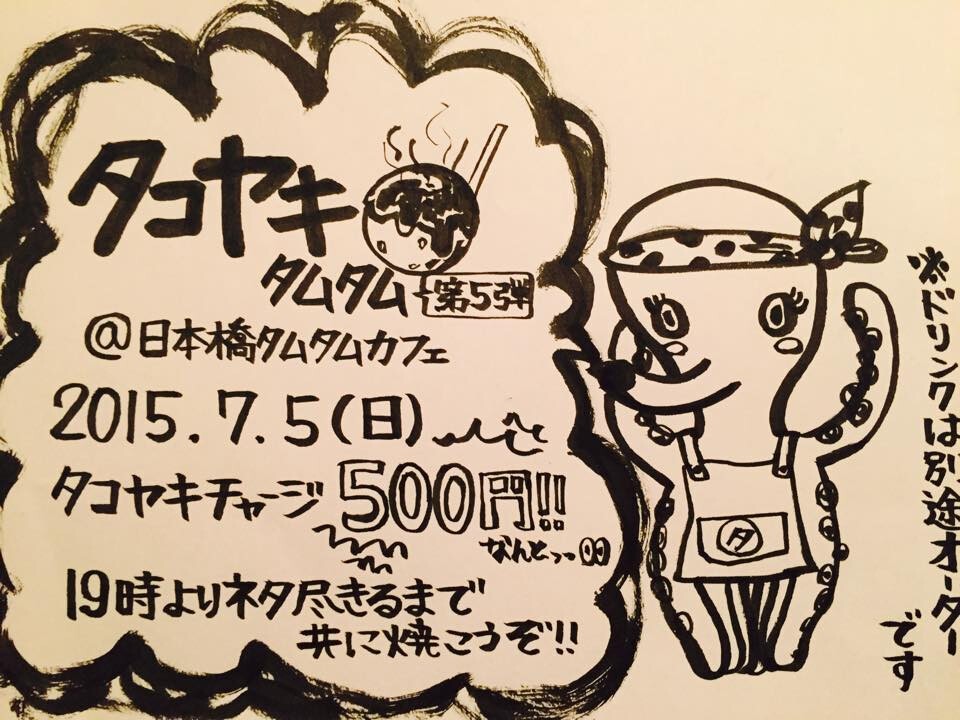 タコヤキ
タムタム 第5弾
@日本橋タムタムカフェ
2015.7.5(日)
タコヤキチャージ 500円!!
なんとっっ
19時よりネタ尽きるまで
共に焼こうぞ!!
タ
※ドリンクは別途オーダー
です